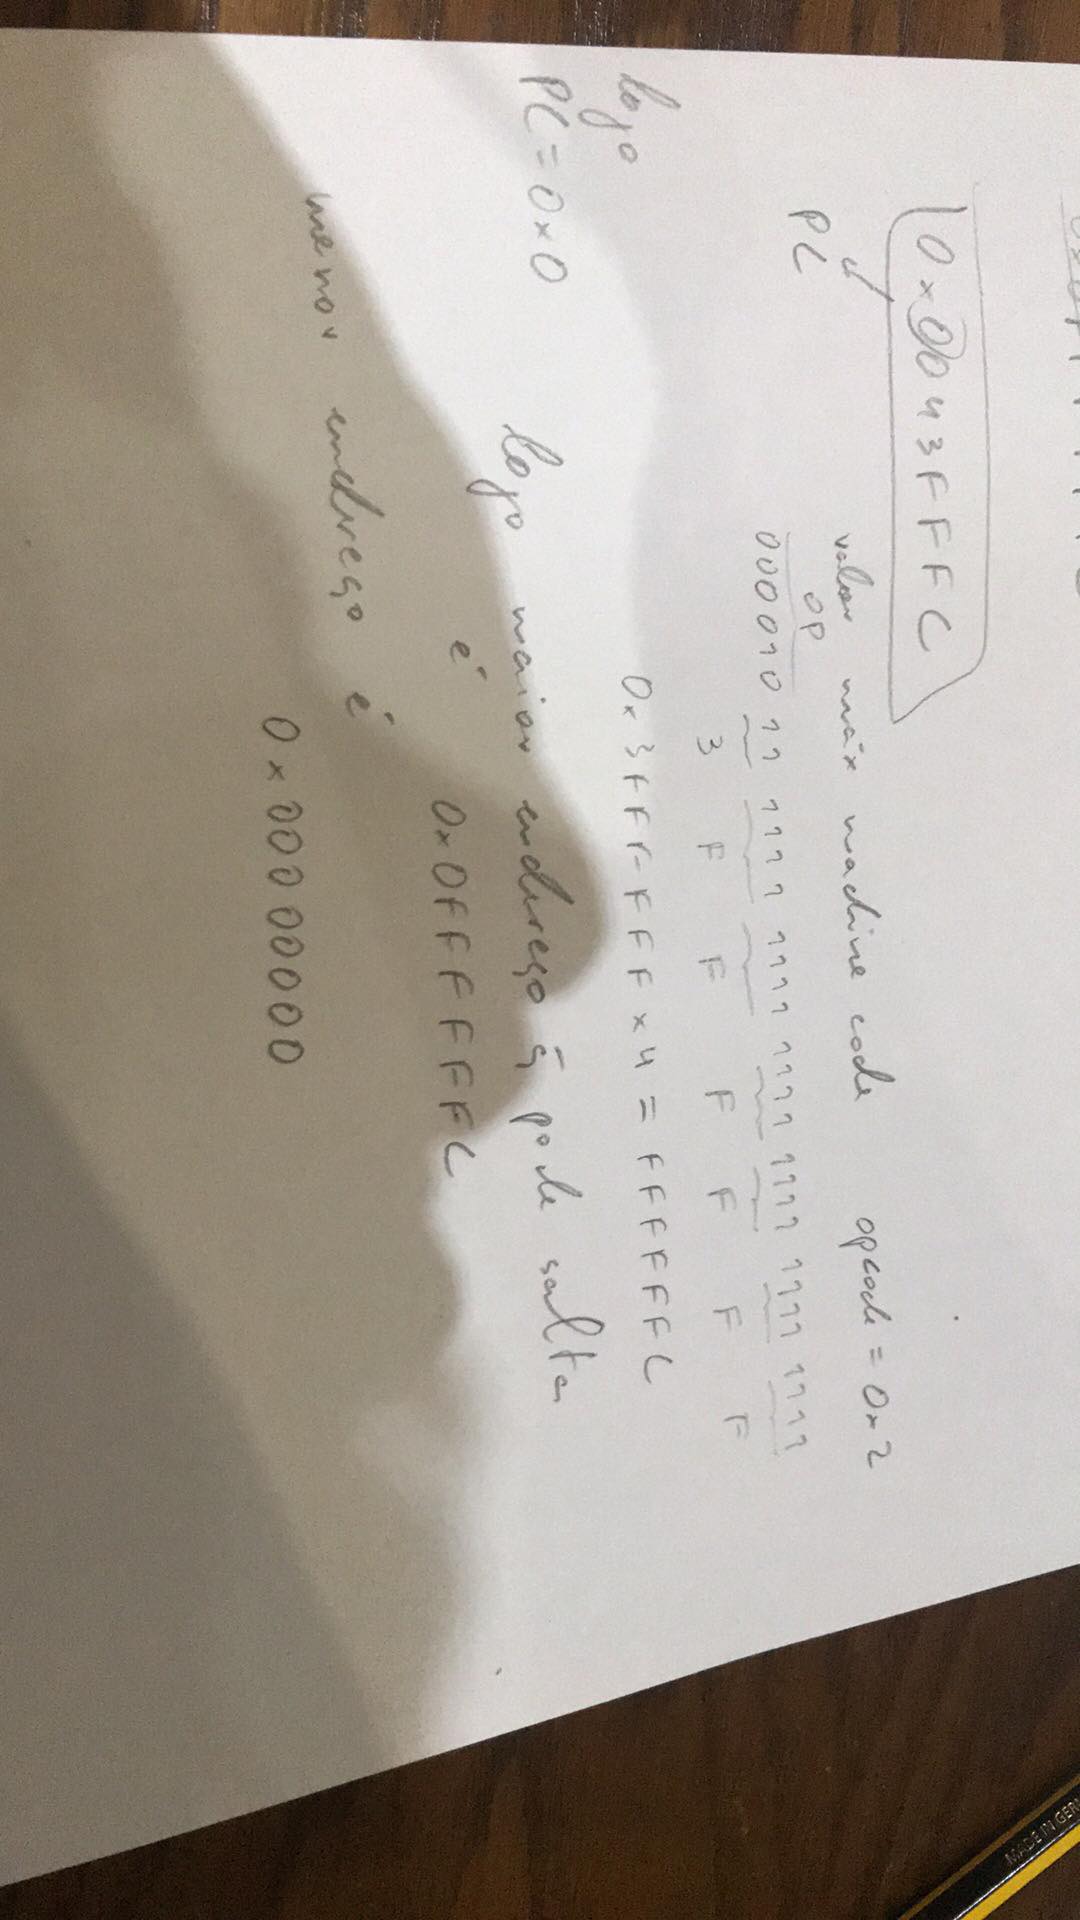 0x0043FFFC
PC
valor máx machine code opcode = 0x2
OP
000010 11 1111 1111 1111 1111 1111 1111
3 F F F F F F
logo
0x3FFFFFF x 4 = FFFFFFC
PC = 0x0
logo maior endereço q̃ pode salta
é 0x0FFFFFFC
menor endereço é
0x00000000
MADE IN GER